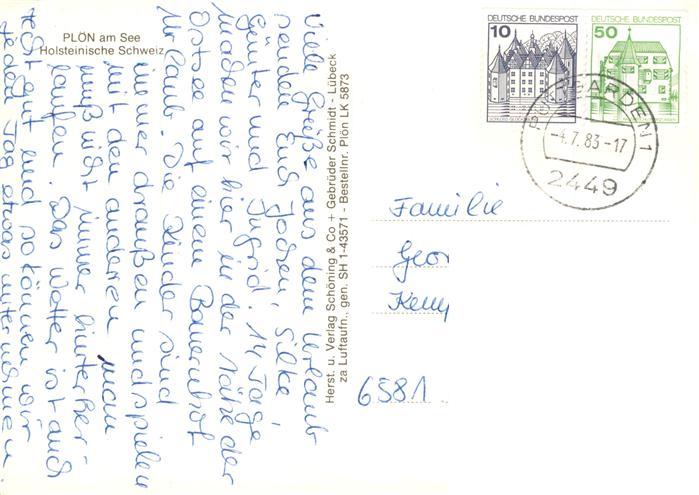 PLÖN am See
Holsteinische Schweiz
Viele Grüße aus dem Urlaub
senden Euch Jochen, Silke,
Günter und Ingrid. 14 Tage
machen wir hier in der Nähe der
Ostsee auf einem Bauernhof
Urlaub. Die Kinder sind
immer draußen und spielen
mit den anderen man
muß nicht immer hinterher
laufen. Das Wetter ist auch
sehr gut und so können wir
jeden Tag etwas unternehmen.
Herst. u. Verlag Schöning & Co + Gebrüder Schmidt - Lübeck
za Luftaufn., gen. SH 1-43571 - Bestellnr. Plön LK 5873
DEUTSCHE BUNDESPOST
10
DEUTSCHE BUNDESPOST
50
-4.7.83-17
2449
Familie
Geor
Kemp
6581